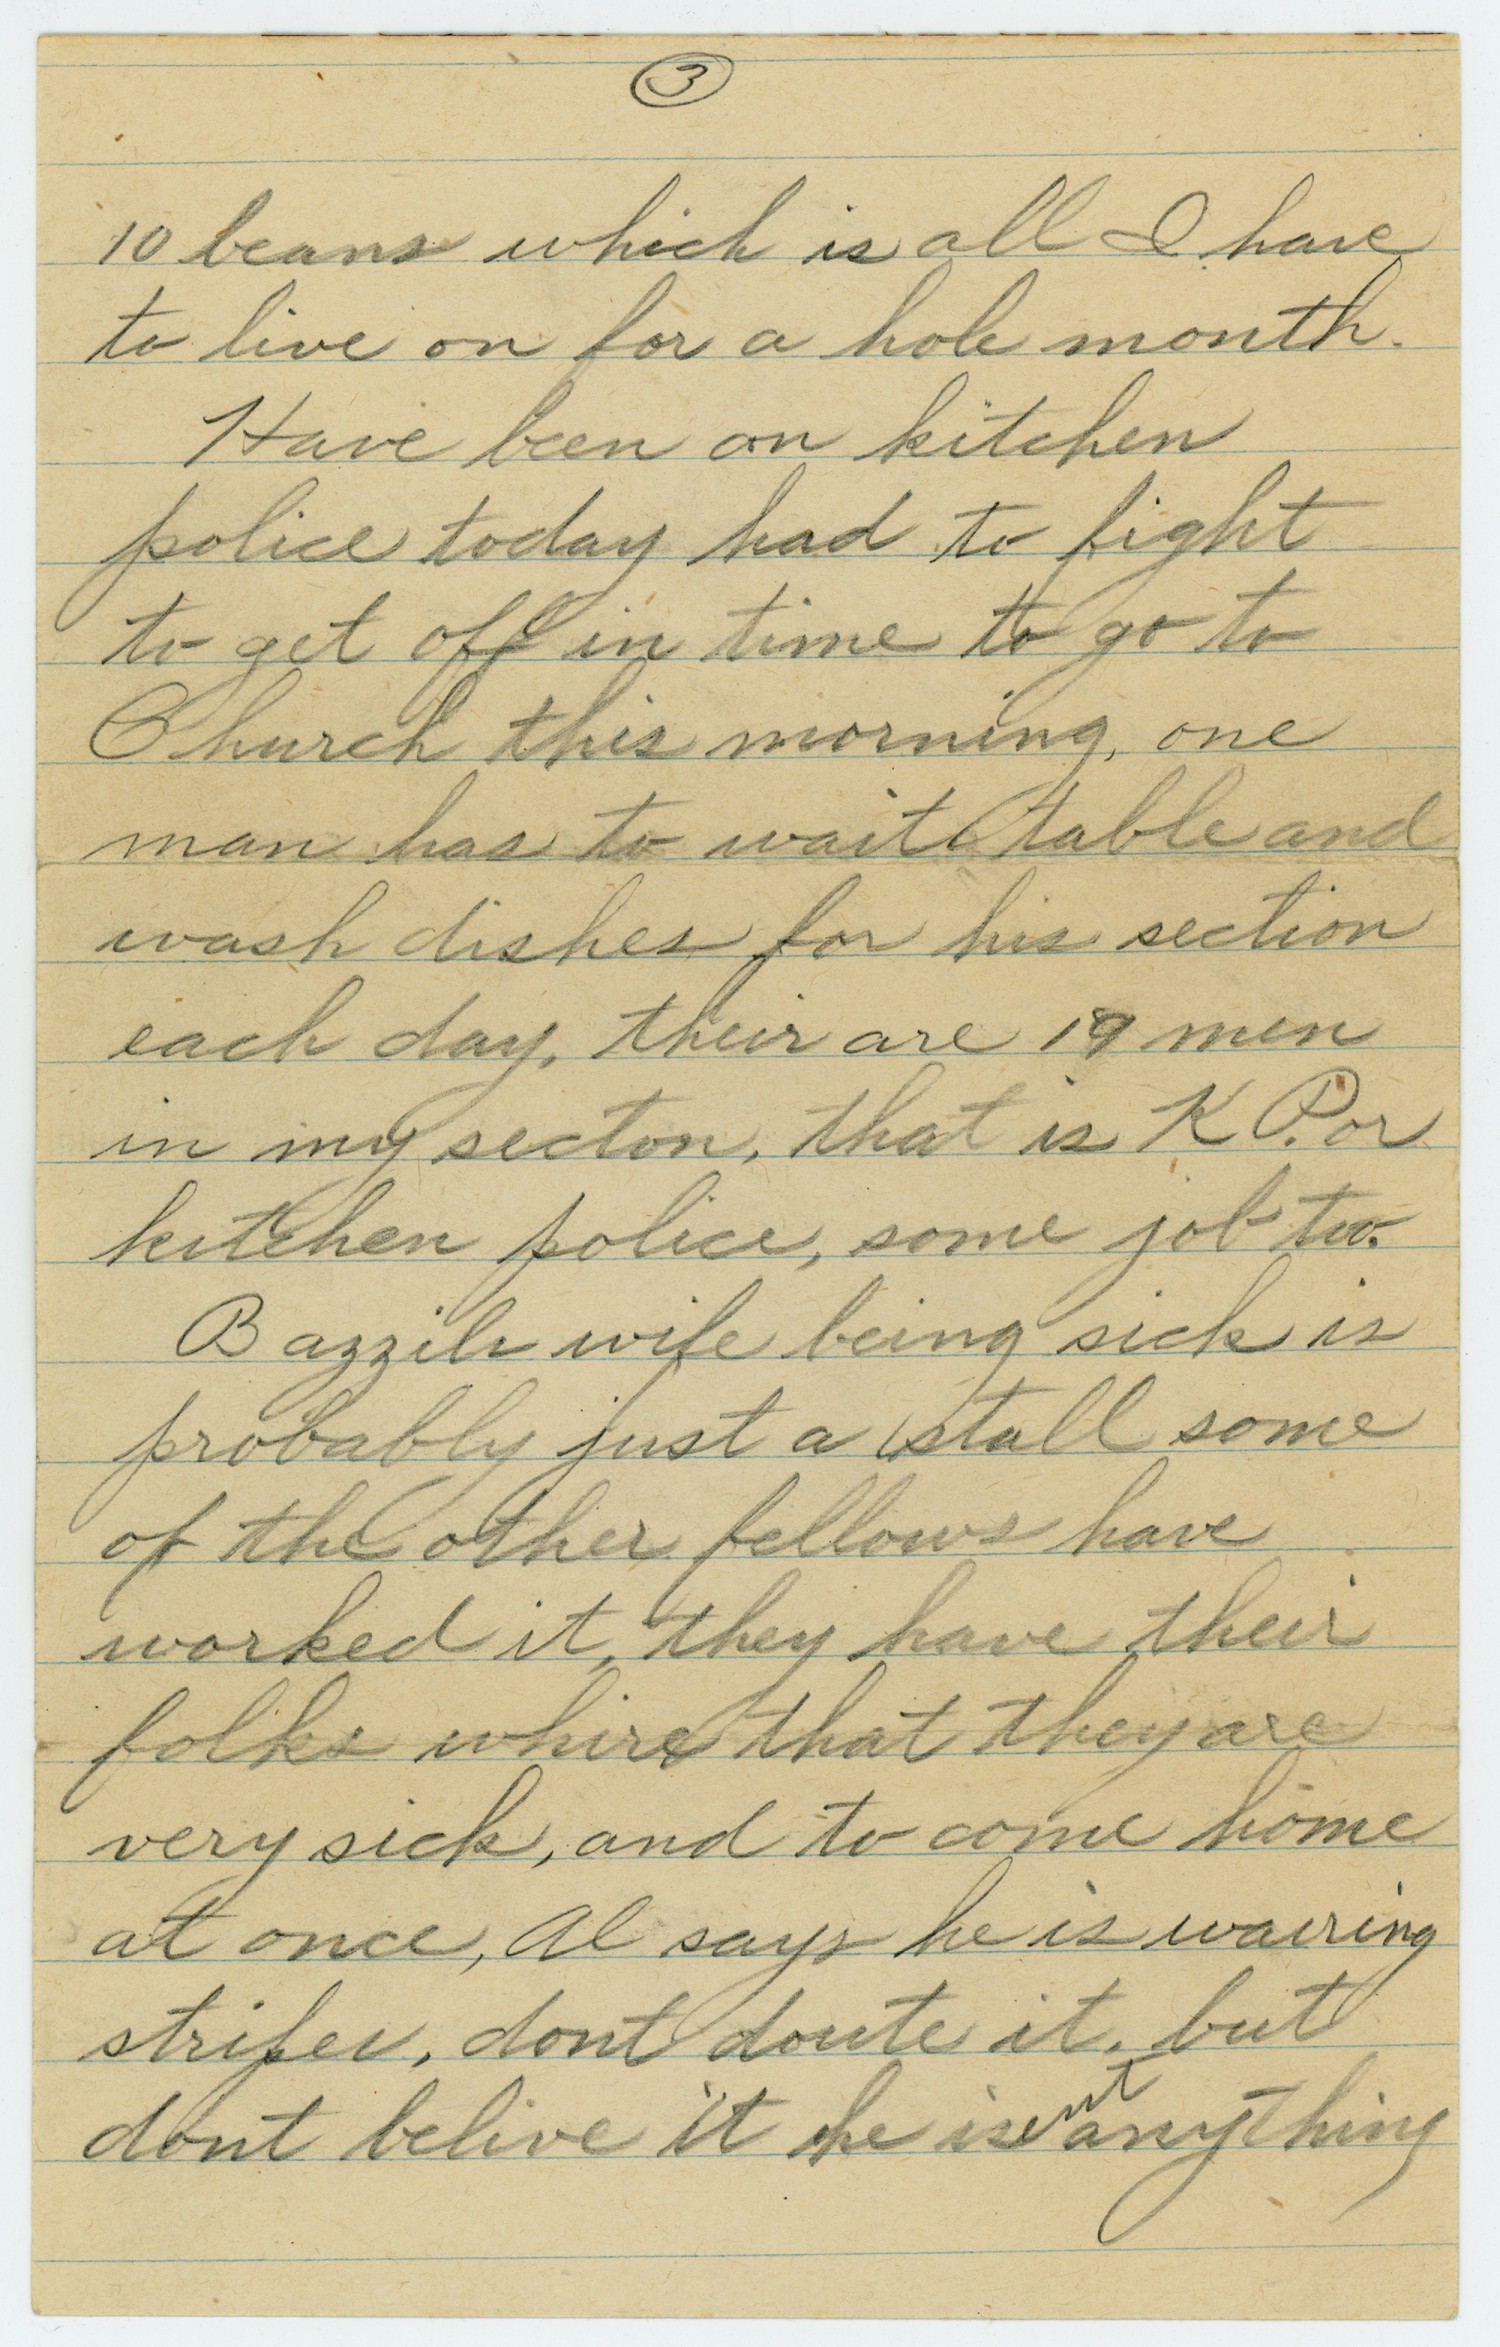 3
10 beans which is all I have
to live on for a hole month.
Have been on kitchen
police today had to fight
to get off in time to go to
Church this morning, one
man has to wait table and
wash dishes for his section
each day, their are 19 men
in my secton, that is K P. or
kitchen police, some job too.
Bazzils wife being sick is
probably just a stall some
of the other fellows have
worked it, they have their
folks whire that they are
very sick, and to come home
at once, Al says he is wairing
stripes, dont doute it, but
dont belive it he isent anything